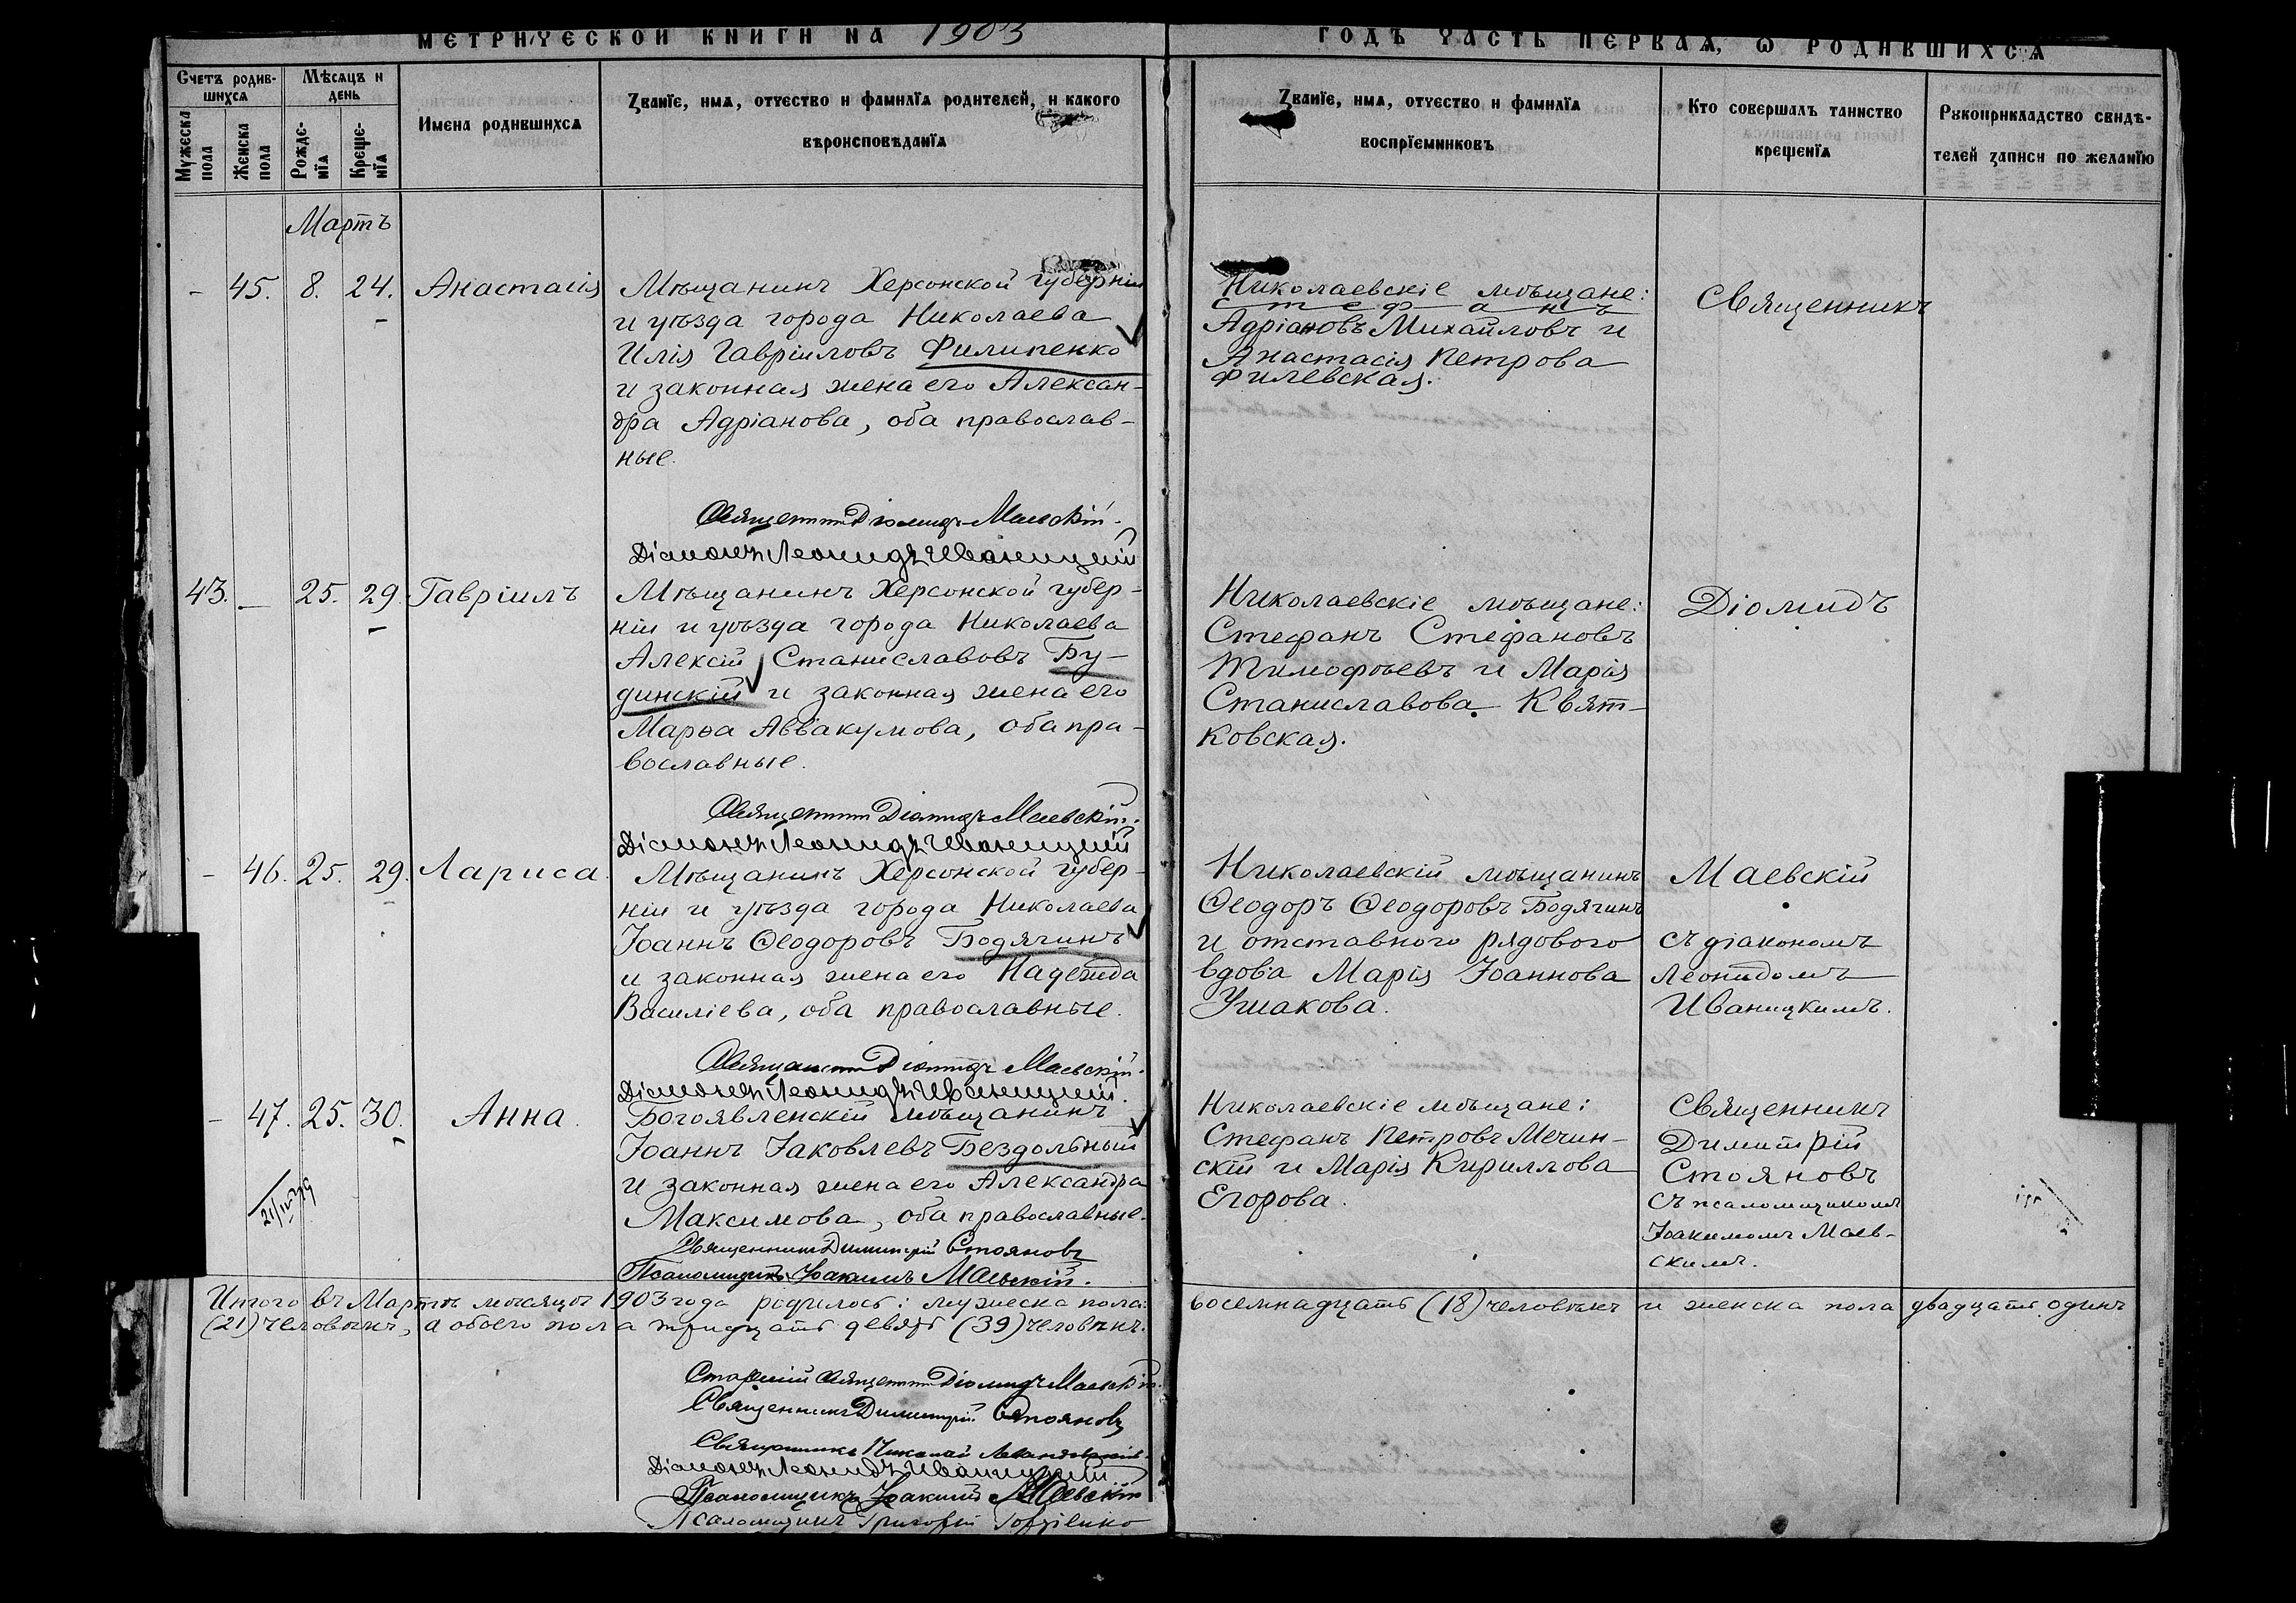 МЕТРИЧЕСКОЙ КНИГИ НА 1903
ГОДЪ ЧАСТЬ ПЕРВАЯ, Ѡ РОДИВШИХСЯ
Счетъ родив-
шихся
Мѣсяцъ и
день
Мужеска
пола
Женска
пола
Рожде-
нїя
Креще-
нїя
Имена родившихся
Званїе, имя, отчество и фамилїя родителей, и какого
вѣроисповѣданїя
Званїе, имя, отчество и фамилїя
воспрїемниковъ
Кто совершалъ таинство
крещенїя
Рукоприкладство свидѣ-
телей записи по желанїю
Мартъ
- 45. 8. 24. Анастасія
Мѣщанинъ Херсонской губерніи
и уѣзда города Николаева
Илія Гавріиловъ Филипенко
и законная жена его Алексан-
дра Адріанова, оба православ-
ные.
Священникъ Діомидъ Маевскій.
Діаконъ Леонидъ Иваницкій
Николаевскіе мѣщане:
Стефанъ
Адріановъ Михайловъ и
Анастасія Петрова
Филевская.
Священникъ
43. — 25. 29. Гавріилъ
Мѣщанинъ Херсонской губер-
ніи и уѣзда города Николаева
Алексій Станиславовъ Бу-
динскій и законная жена его
Марѳа Аввакумова, оба пра-
вославные.
Священникъ Діомидъ Маевскій.
Діаконъ Леонидъ Иваницкій
Николаевскіе мѣщане:
Стефанъ Стефановъ
Тимофѣевъ и Марія
Станиславова Квят-
ковская.
Діомидъ
- 46. 25. 29. Лариса.
Мѣщанинъ Херсонской губер-
ніи и уѣзда города Николаева
Іоаннъ Ѳеодоровъ Бодягинъ
и законная жена его Надежда
Василіева, оба православные.
Священникъ Діомидъ Маевскій.
Діаконъ Леонидъ Иваницкій.
Николаевскій мѣщанинъ
Ѳеодоръ Ѳеодоровъ Бодягинъ
и отставного рядового
вдова Марія Іоаннова
Ушакова.
Маевскій
съ діакономъ
Леонидомъ
Иваницкимъ.
- 47. 25. 30. Анна.
Богоявленскій мѣщанинъ
Іоаннъ Іаковлевъ Бездольный
и законная жена его Александра
Максимова, оба православные.
Священникъ Димитрій Стояновъ
Псаломщикъ Іоакимъ Маевскій.
Николаевскіе мѣщане:
Стефанъ Петровъ Мечин-
скій и Марія Кириллова
Егорова.
Священникъ
Димитрій
Стояновъ
съ псаломщикомъ
Іоакимомъ Маев-
скимъ.
Итого въ Мартѣ мѣсяцѣ 1903 года родилось: мужеска пола: восемнадцать (18) человѣкъ и женска пола двадцать одинъ
(21) человѣкъ, а обоего пола тридцать девять (39) человѣкъ.
Старшій Священникъ Діомидъ Маевскій.
Священникъ Димитрій Стояновъ
Священникъ Николай
Діаконъ Леонидъ Иваницкій
Псаломщикъ Іоакимъ Маевскій
Псаломщикъ Григорій Гордіенко